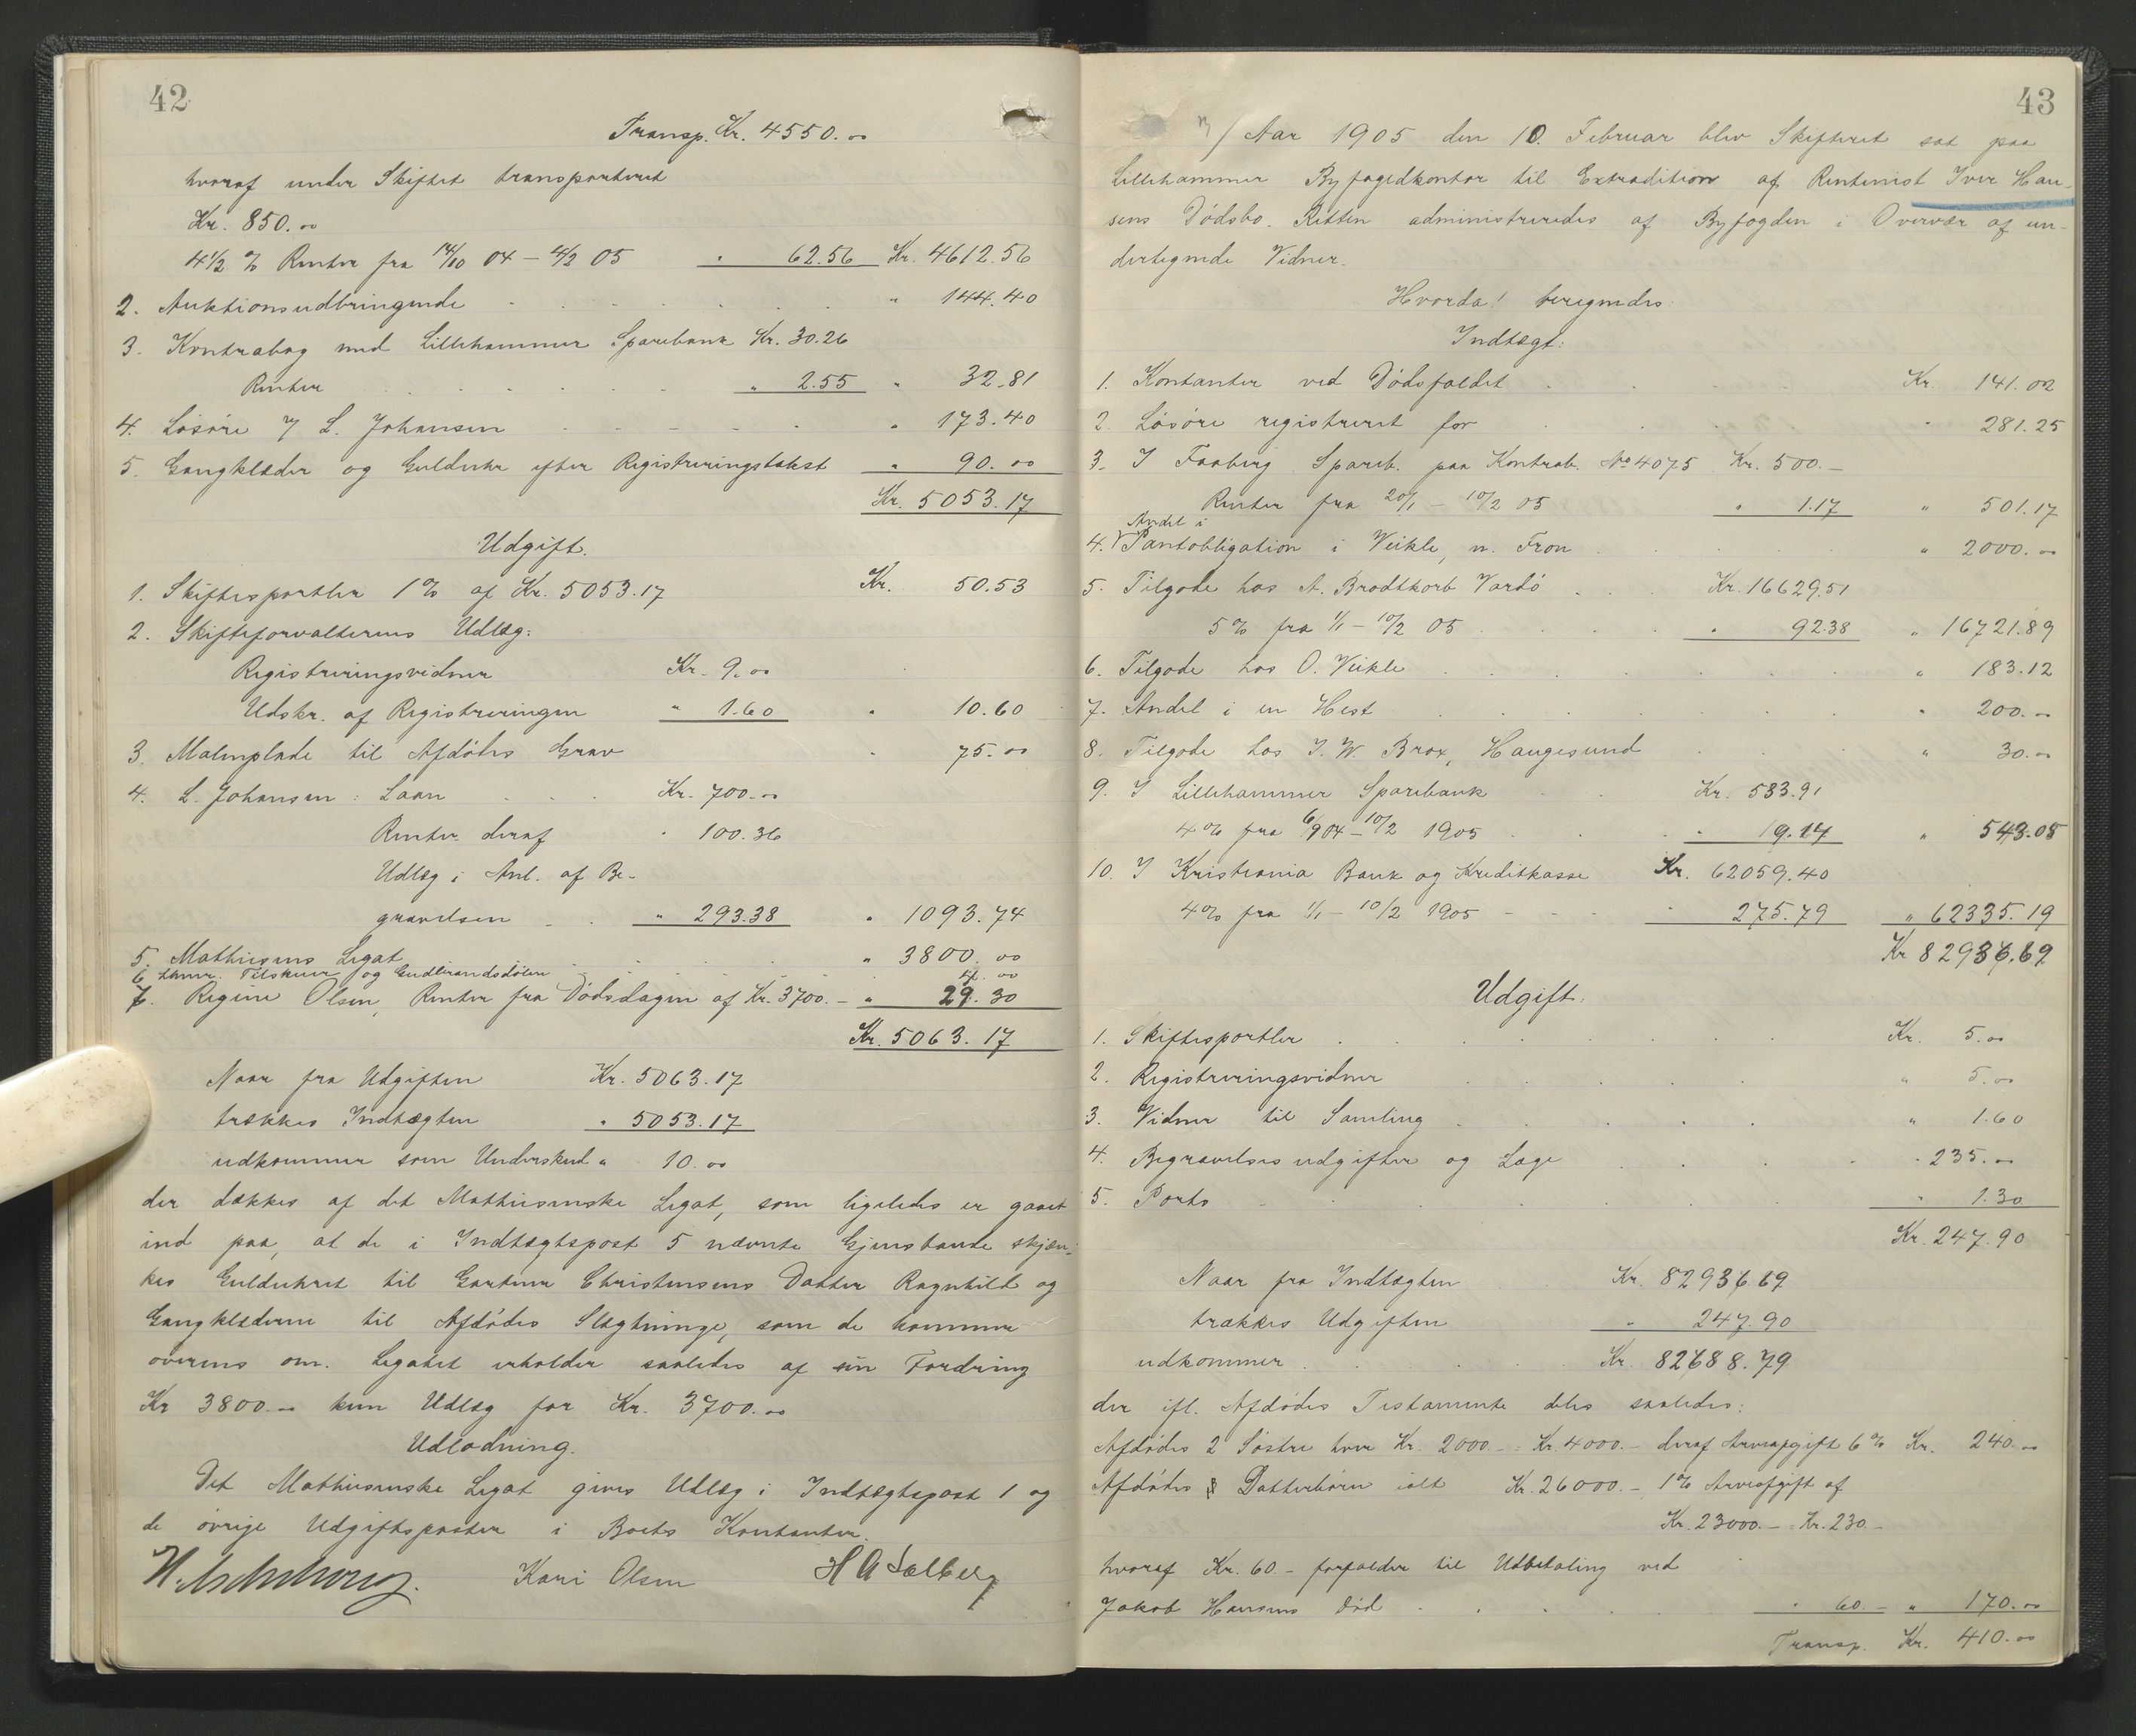 42
Transp. Kr. 4550.00
hvoraf under Skiftet transporteret
Kr. 850.00
4½ % Renter fra 14/10 04 – 4/2 05 " 62.56 Kr. 4612.56
2. Auktionsudbringende " 144.40
3. Kontrabog med Lillehammer Sparebank Kr. 30.26
Renter " 2.55 " 32.81
4. Løsøre L. Johansen " 173.40
5. Gangklæder og Guldur efter Registreringstakst " 90.00
Kr. 5053.17
Udgift.
1. Skiftesportler 1% af Kr. 5053.17 Kr. 50.53
2. Skifteforvalterens Udlæg:
Registreringsvidner Kr. 9.00
Udskr. af Registreringen " 1.60 " 10.60
3. Malmplade til Afdødes Grav " 75.00
4. L. Johansen: Laan Kr. 700.00
Renter deraf " 100.36
Udlæg i Anl. af Be-
gravelsen " 293.38 " 1093.74
5. Mathiesens Legat " 3800.00
6. Tilskuer og Gudbrandsdølen " 4.00
7. Regine Olsen, Renter fra Dødsdagen af Kr. 3700.– " 29.30
Kr. 5063.17
Naar fra Udgiften Kr. 5063.17
trækkes Indtægten " 5053.17
udkommer som Underskud " 10.00
der dækkes af det Mathiesenske Legat, som ligeledes er gaaet
ind paa, at de i Indtægtspost 5 nævnte Gjenstande skjæn-
kes Gulduhret til Gartner Christensens Datter Ragnhild og
Gangklæderne til Afdødes Slægtninge, som de kommer
overens om. Legatet erholder saaledes af sin Fordring
Kr 3800.00 kun Udlæg for Kr. 3700.00
Udlodning.
Det Mathiesenske Legat gives Udlæg i Indtægtspost 1 og
de øvrige Udgiftsposter i Boets Kontanter.
Kari Olsen H A Sælberg
43
Aar 1905 den 10. Februar blev Skifteret sat paa
Lillehammer Byfogedkontor til Extradition af Rentenist Iver Han-
sens Dødsbo. Retten administreredes af Byfogden i Overvær af un-
dertegnede Vidner.
Hvorda! beregnedes:
Indtægt:
1. Kontanter ved Dødsfaldet Kr. 141.02
2. Løsøre registreret for " 281.25
3. I Faaberg Spareb. paa Kontrab. No 4075 Kr. 500.–
Renter fra 20/1 – 10/2 05 " 1.17 " 501.17
Andel i
4. Pantobligation i Veikle, n. Fron " 2000.00
5. Tilgode hos A. Brodtkorb Vardø Kr. 16629.51
5% fra 1/1 – 10/2 05 " 92.38 " 16721.89
6. Tilgode hos O. Veikle " 183.12
7. Andel i en Hest " 200.00
8. Tilgode hos I. W. Brox, Haugesund " 30.00
9. I Lillehammer Sparebank Kr. 533.91
4% fra 6/9 04 – 10/2 1905 " 19.14 " 543.05
10. I Kristiania Bank og Kreditkasse Kr. 62059.40
4% fra 1/1 – 10/2 1905 " 275.79 " 62335.19
Kr 82936.69
Udgift:
1. Skiftesportler Kr. 5.00
2. Registreringsvidner " 5.00
3. Vidner til Samling " 1.60
4. Begravelsesudgifter og Læge " 235.00
5. Porto " 1.30
Kr. 247.90
Naar fra Indtægten Kr. 82936.69
trækkes Udgiften " 247.90
udkommer Kr. 82688.79
der ifl. Afdødes Testamente deles saaledes:
Afdødes 2 Søstre hver Kr. 2000.– : Kr. 4000.– deraf Arveafgift 6% Kr. 240.00
Afdødes 8 Datterbørn ialt Kr. 26000.– 1% Arveafgift af
Kr. 23000.– : Kr. 230.–
hvoraf Kr. 60.– forfalder til Udbetaling ved
Jakob Hansens Død " 60.– " 170.00
Transp. Kr. 410.00